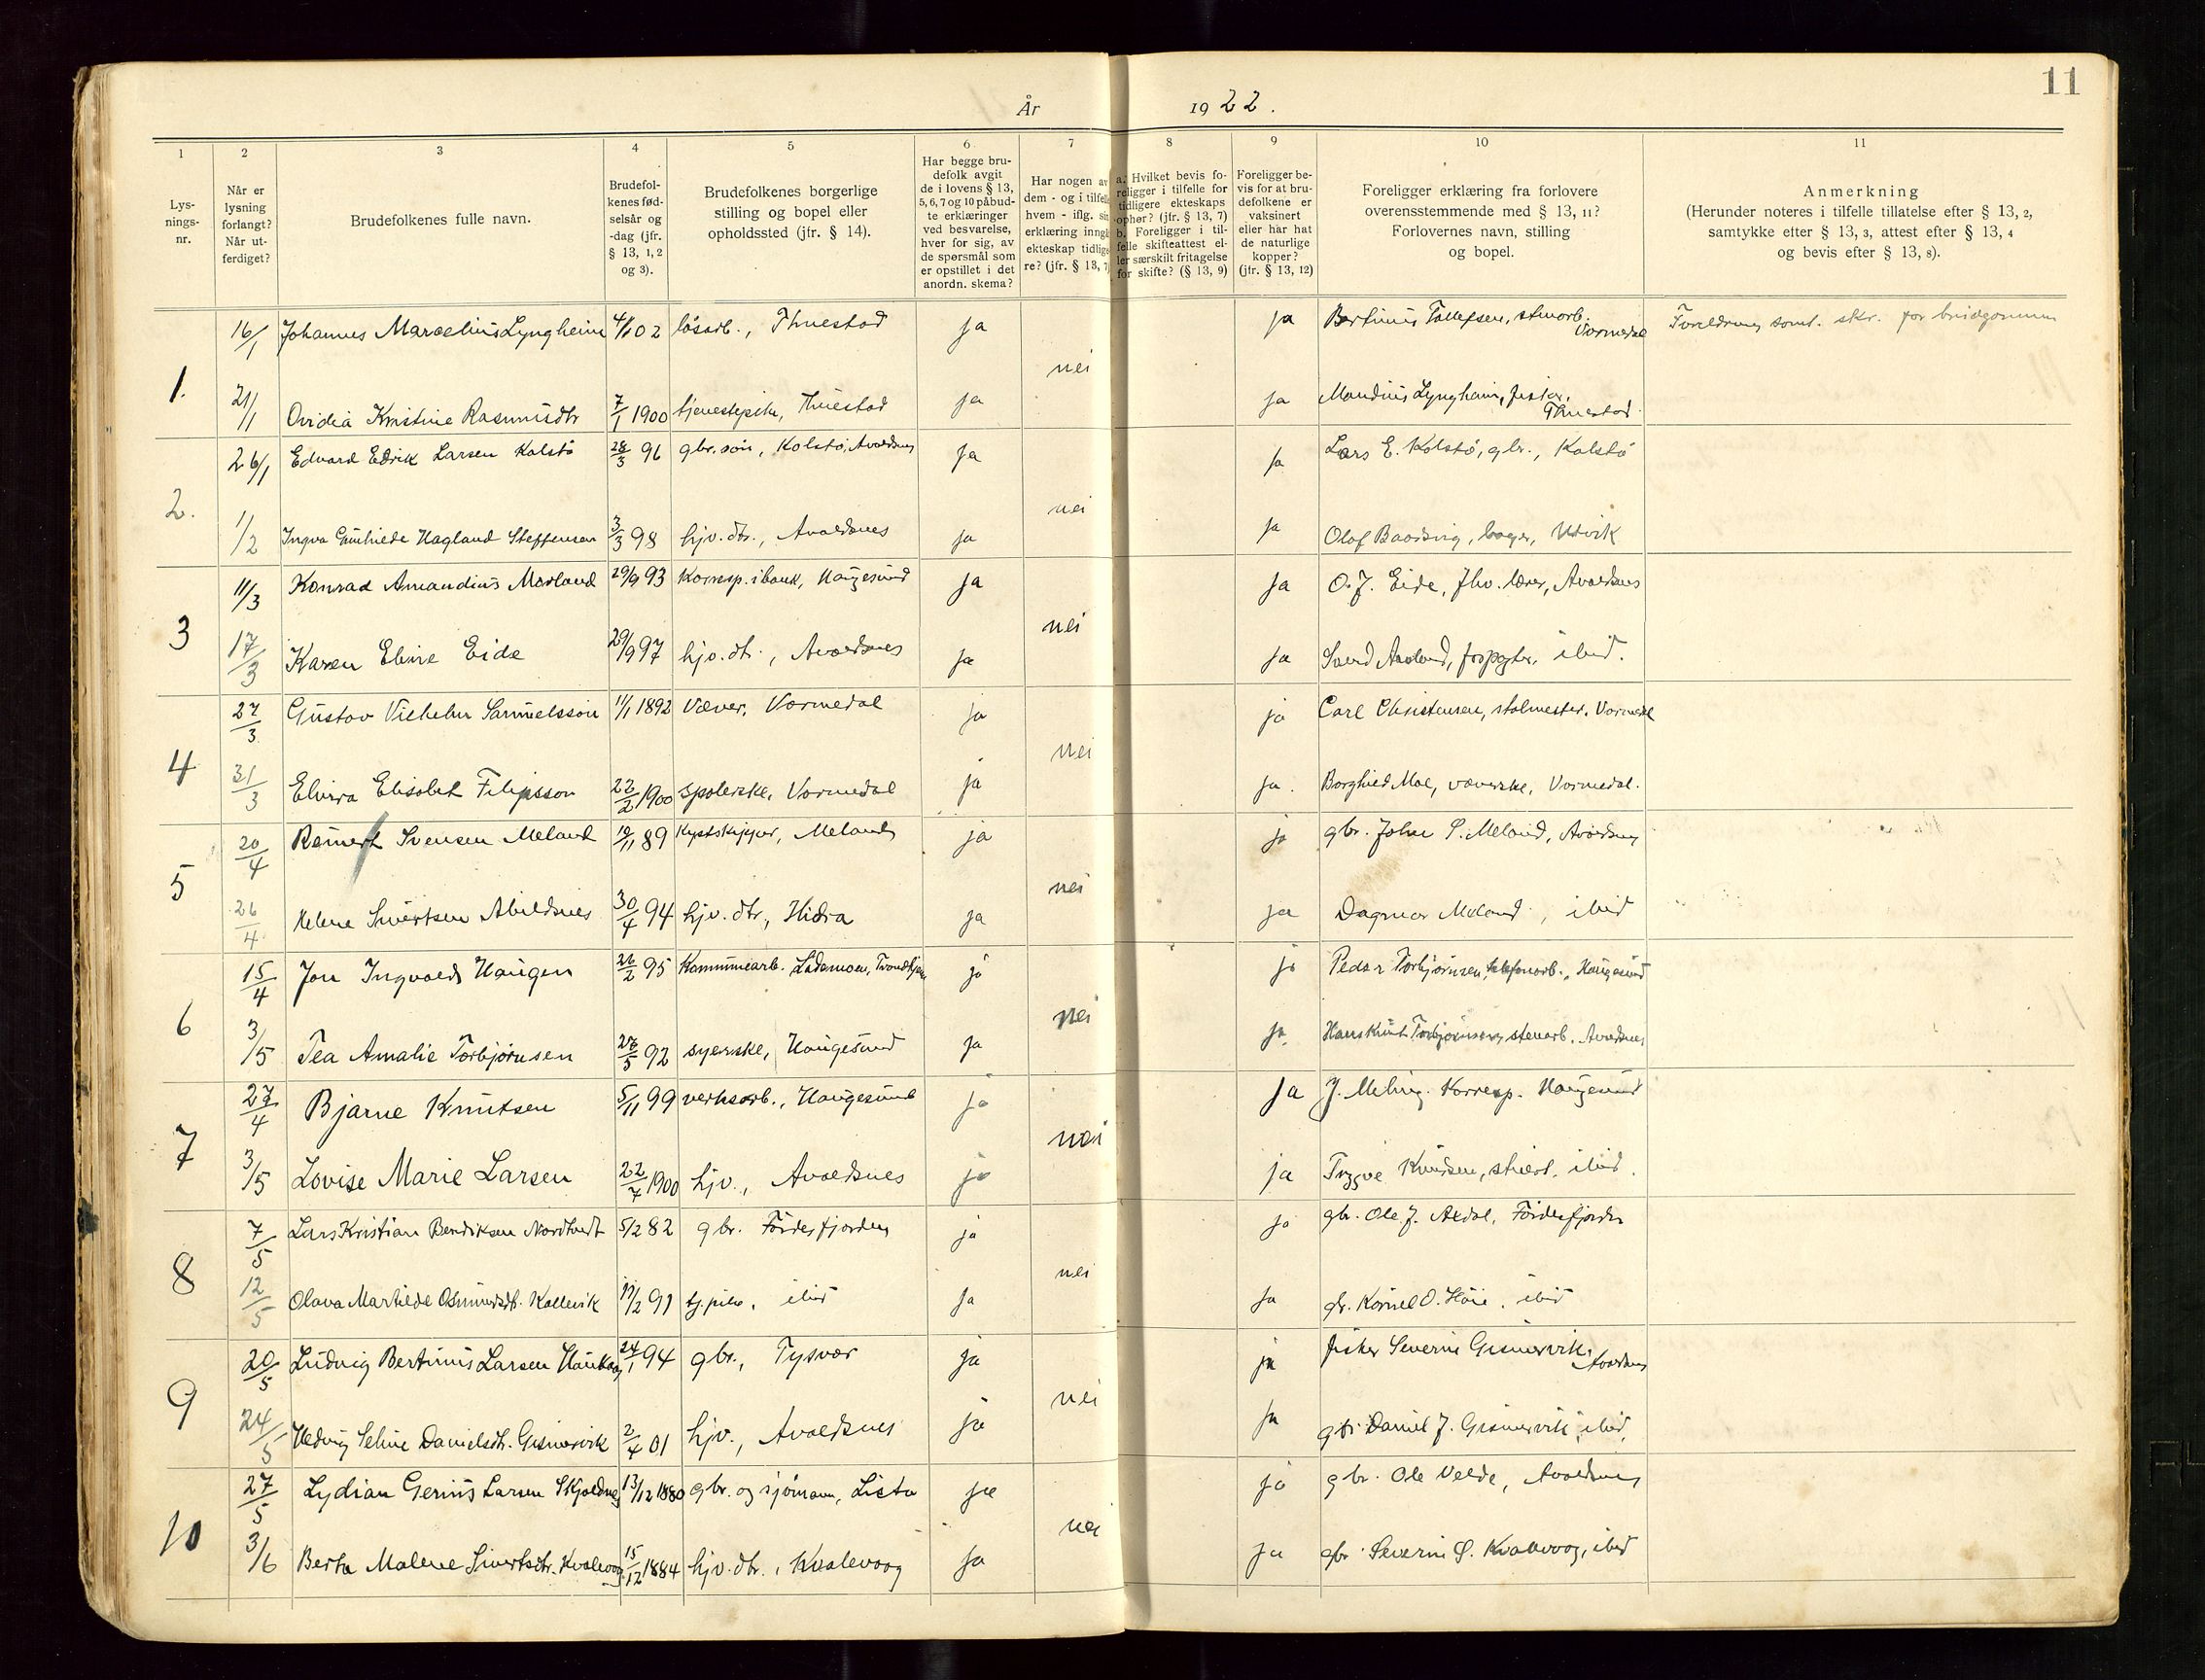 11
År 1922.
1 2 3 4 5 6 7 8 9 10 11
Lys-
nings-
nr.
Når er
lysning
forlangt?
Når ut-
ferdiget?
Brudefolkenes fulle navn.
Brudefol-
kenes fød-
selsår og
-dag (jfr.
§ 13, 1, 2
og 3).
Brudefolkenes borgerlige
stilling og bopel eller
opholdssted (jfr. § 14).
Har begge bru-
defolk avgit
de i lovens § 13,
5, 6, 7 og 10 påbud-
te erklæringer
ved besvarelse,
hver for sig, av
de spørsmål som
er opstillet i det
anordn. skema?
Har nogen av
dem - og i tilfelle
hvem - iflg. sin
erklæring inngå
ekteskap tidlig
re? (jfr. § 13, 7)
a. Hvilket bevis fo-
religger i tilfelle for
tidligere ekteskaps
ophør? (jfr. § 13, 7)
b. Foreligger i til-
felle skifteattest el-
ler særskilt fritagelse
for skifte? (§ 13, 9)
Foreligger be-
vis for at bru-
defolkene er
vaksinert
eller har hat
de naturlige
kopper?
(jfr. § 13, 12)
Foreligger erklæring fra forlovere
overensstemmende med § 13, 11?
Forlovernes navn, stilling
og bopel.
Anmerkning
(Herunder noteres i tilfelle tillatelse efter § 13, 2,
samtykke efter § 13, 3, attest efter § 13, 4
og bevis efter § 13, 8).
1. 16/1 Johannes Marcelius Lyngheim 4/1 02 løsarb., Thuestad ja nei ja Bertinus Tollefsen, Vormedal
skr. for brudgommen
21/1 Ovidia Kristine Rasmusdtr 7/1 1900 tjenestepike, Thuestad ja ja Mandius Lyngheim, fisker, Thuestad
2. 26/1 Edvard Edrik Larsen Kolstø 28/3 96 gbr. søn, Kolstø, Avaldsnes ja nei ja Lars E. Kolstø, gbr., Kolstø
1/2 Ingva Gunhilde Hagland Steffensen 3/3 98 hjv. dtr., Avaldsnes ja ja Olaf Baadsvig, bager, Utvik
3 11/3 Konrad Amandius Morland 29/9 93 Korresp. i bank, Haugesund ja nei ja O. J. Eide, fhv. lærer, Avaldsnes
17/3 Karen Eline Eide 29/9 97 hjv. dtr., Avaldsnes ja ja ibid.
4 27/3 Gustav Vilhelm Samuelsson 11/1 1892 Væver, Vormedal ja nei ja Carl Christensen, stolmester. Vormedal
31/3 Elvira Elisabet Filipsson 22/2 1900 spolerske, Vormedal ja ja. Borghild Moe, væverske, Vormedal.
5 20/4 Reinert Svensen Meland 10/11 89 Kystskipper, Meland ja nei ja gbr. John S. Meland, Avaldsnes
26/4 Helene Sivertsen Abeldsnes 30/4 94 hjv. dtr, Hidra ja ja Dagmar Meland, ibid
6 15/4 Jon Ingvald Haugen 26/2 95 Kommunearb. Lademoen, Trondhjem ja nei ja Peder Torbjørnsen, telefonarb., Haugesund
3/5 Tea Amalie Torbjørnsen 28/5 92 syerske, Haugesund ja ja. Hans Knut Torbjørnsen, stenarb. Avaldsnes
7 27/4 Bjarne Knutsen 5/11 99 verksarb., Haugesund ja nei ja J. Meling. Korresp. Haugesund
3/5 Lovise Marie Larsen 22/7 1900 hjv., Avaldsnes ja ja Trygve Knutsen, ibid.
8 7/5 Lars Kristian Bendiksen Nordtvedt 5/2 82 gbr. Førdesfjorden ja nei ja gbr. Ole J. Axdal, Førdesfjorden
12/5 Olava Martilde Osmundsdt. Kallevik 19/2 91 tj. pike, ibid ja ja gbr. Kornel O. Høie, ibid
9 20/5 Ludvig Bertinus Larsen Haukaas 24/1 94 gbr., Tysvær ja nei ja fisker Severin Gismervik, Avaldsnes
24/5 Hedvig Seline Danielsdt. Gismervik 2/4 01 hjv., Avaldsnes ja ja gbr Daniel J. Gismervik, ibid.
10 27/5 Lydian Gerius Larsen Skjoldnes 13/12 1880 gbr. og sjömann, Lista ja nei ja gbr. Ole Velde, Avaldsnes
3/6 Berta Malene Sivertsdtr. Kvalevaag 15/12 1884 hjv. dtr., Kvalevaag ja ja gbr. Severin S. Kvalevaag, ibid